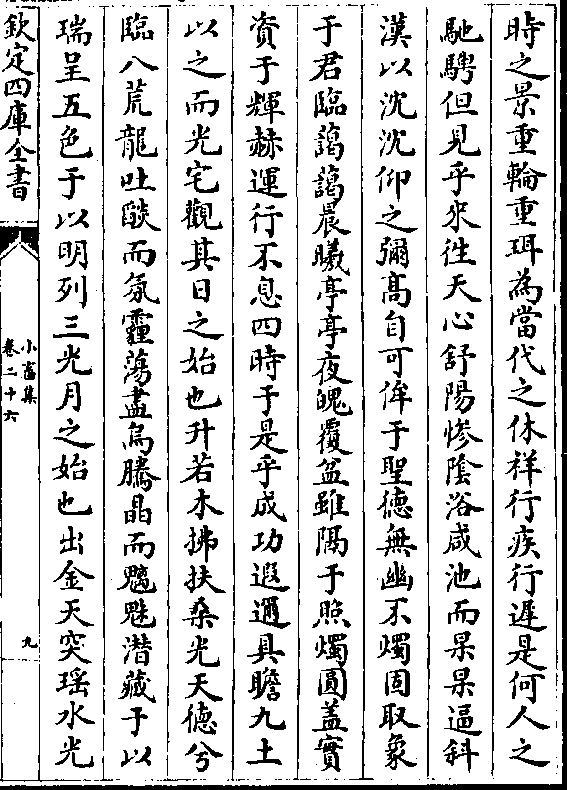 時之景重輪重珥為當代之休祥行疾行遲是何人之
馳騁但見乎來徃天心舒陽慘隂浴咸池而杲杲逼斜
漢以沈沈仰之彌髙自可侔于聖徳無幽不燭固取象
于君臨藹藹晨曦亭亭夜魄覆盆雖隔于照燭圓蓋實
資于輝赫運行不息四時于是乎成功遐邇具瞻九土
以之而光宅觀其日之始也升若木拂扶桑光天徳兮
臨八荒龍吐燄而氛霾蕩盡烏騰晶而魑魅潜藏于以
瑞呈五色于以明列三光月之始也出金天突瑶水光
欽定四庫全書
小畜集
卷二十六
九